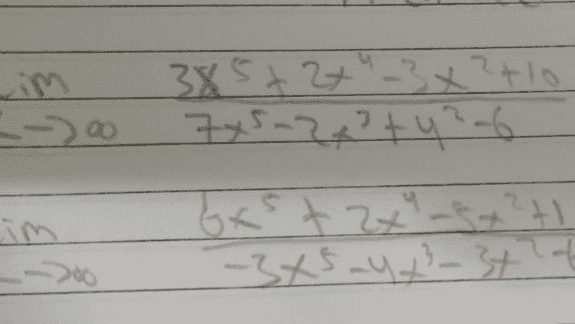 im 3x⁵ + 2x⁴ - 3x² + 10
-->∞ 7x⁵ - 2x³ + y² - 6
im 6x⁵ + 2x⁴ - 5x² + 1
-->∞ -3x⁵ - 4x³ - 3x² -